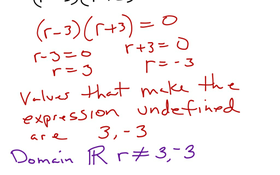 (r-3)(r+3)=0
r-3=0 r+3=0
r=3 r=-3
Values that make the
expression undefined
are 3,-3
Domain ℝ r≠3,-3